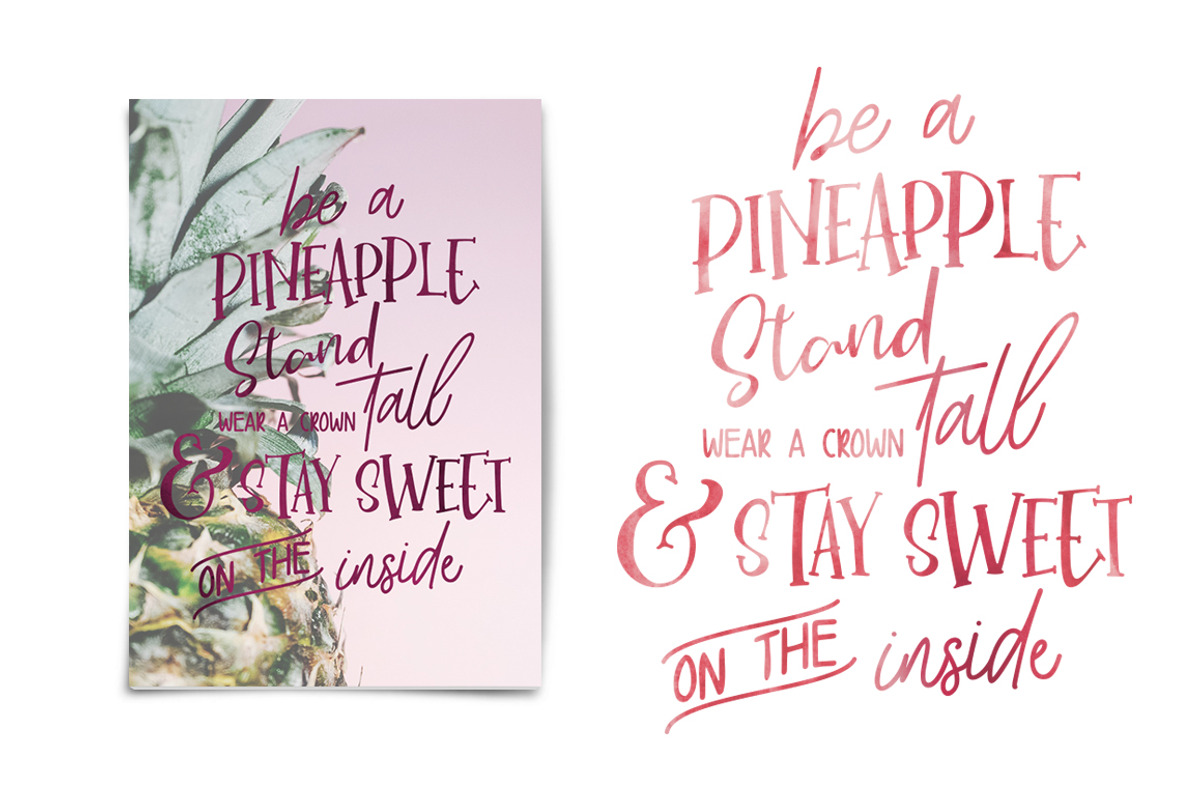 be a
PINEAPPLE
Stand
tall
WEAR A CROWN
& STAY SWEET
ON THE inside
be a
PINEAPPLE
Stand
tall
WEAR A CROWN
& STAY SWEET
ON THE inside